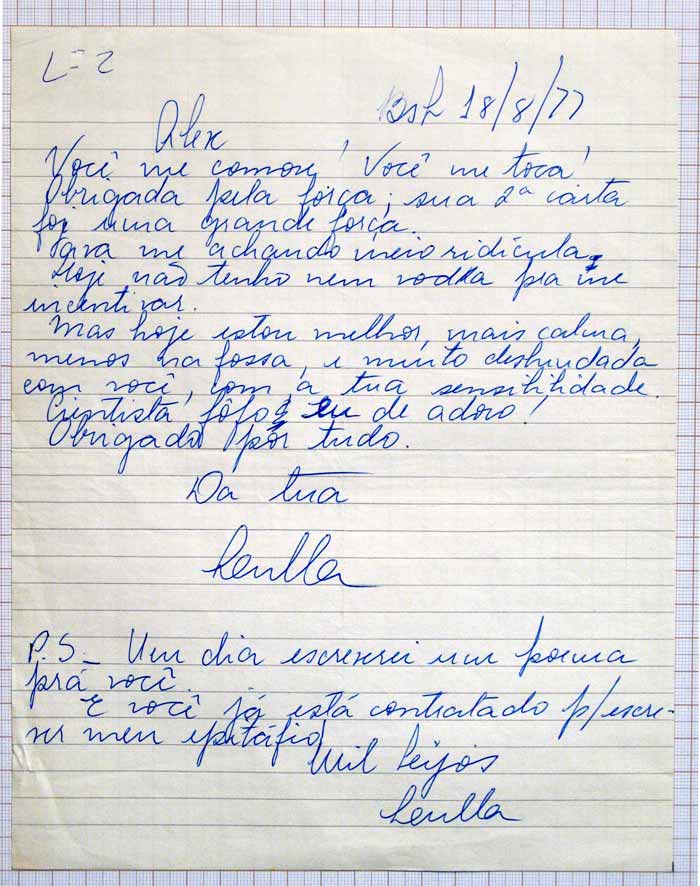 L=2
Bsb 18/8/77
Alex
Você me comove! Você me toca!
Obrigada pela força; sua 2ª carta
foi uma grande força.
Tava me achando meio ridícula.
Hoje não tenho nem vodka pra me
incentivar.
Mas hoje estou melhor, mais calma,
menos na fossa, e muito deslumdada
com você, com a tua sensibilidade.
Cientista fôfo; eu de adoro!
Obrigada por tudo.
Da tua
P.S_ Um dia escreverei um poema
prá você.
E você já está contratado p/escre-
ver meu epitáfio!
Mil beijos